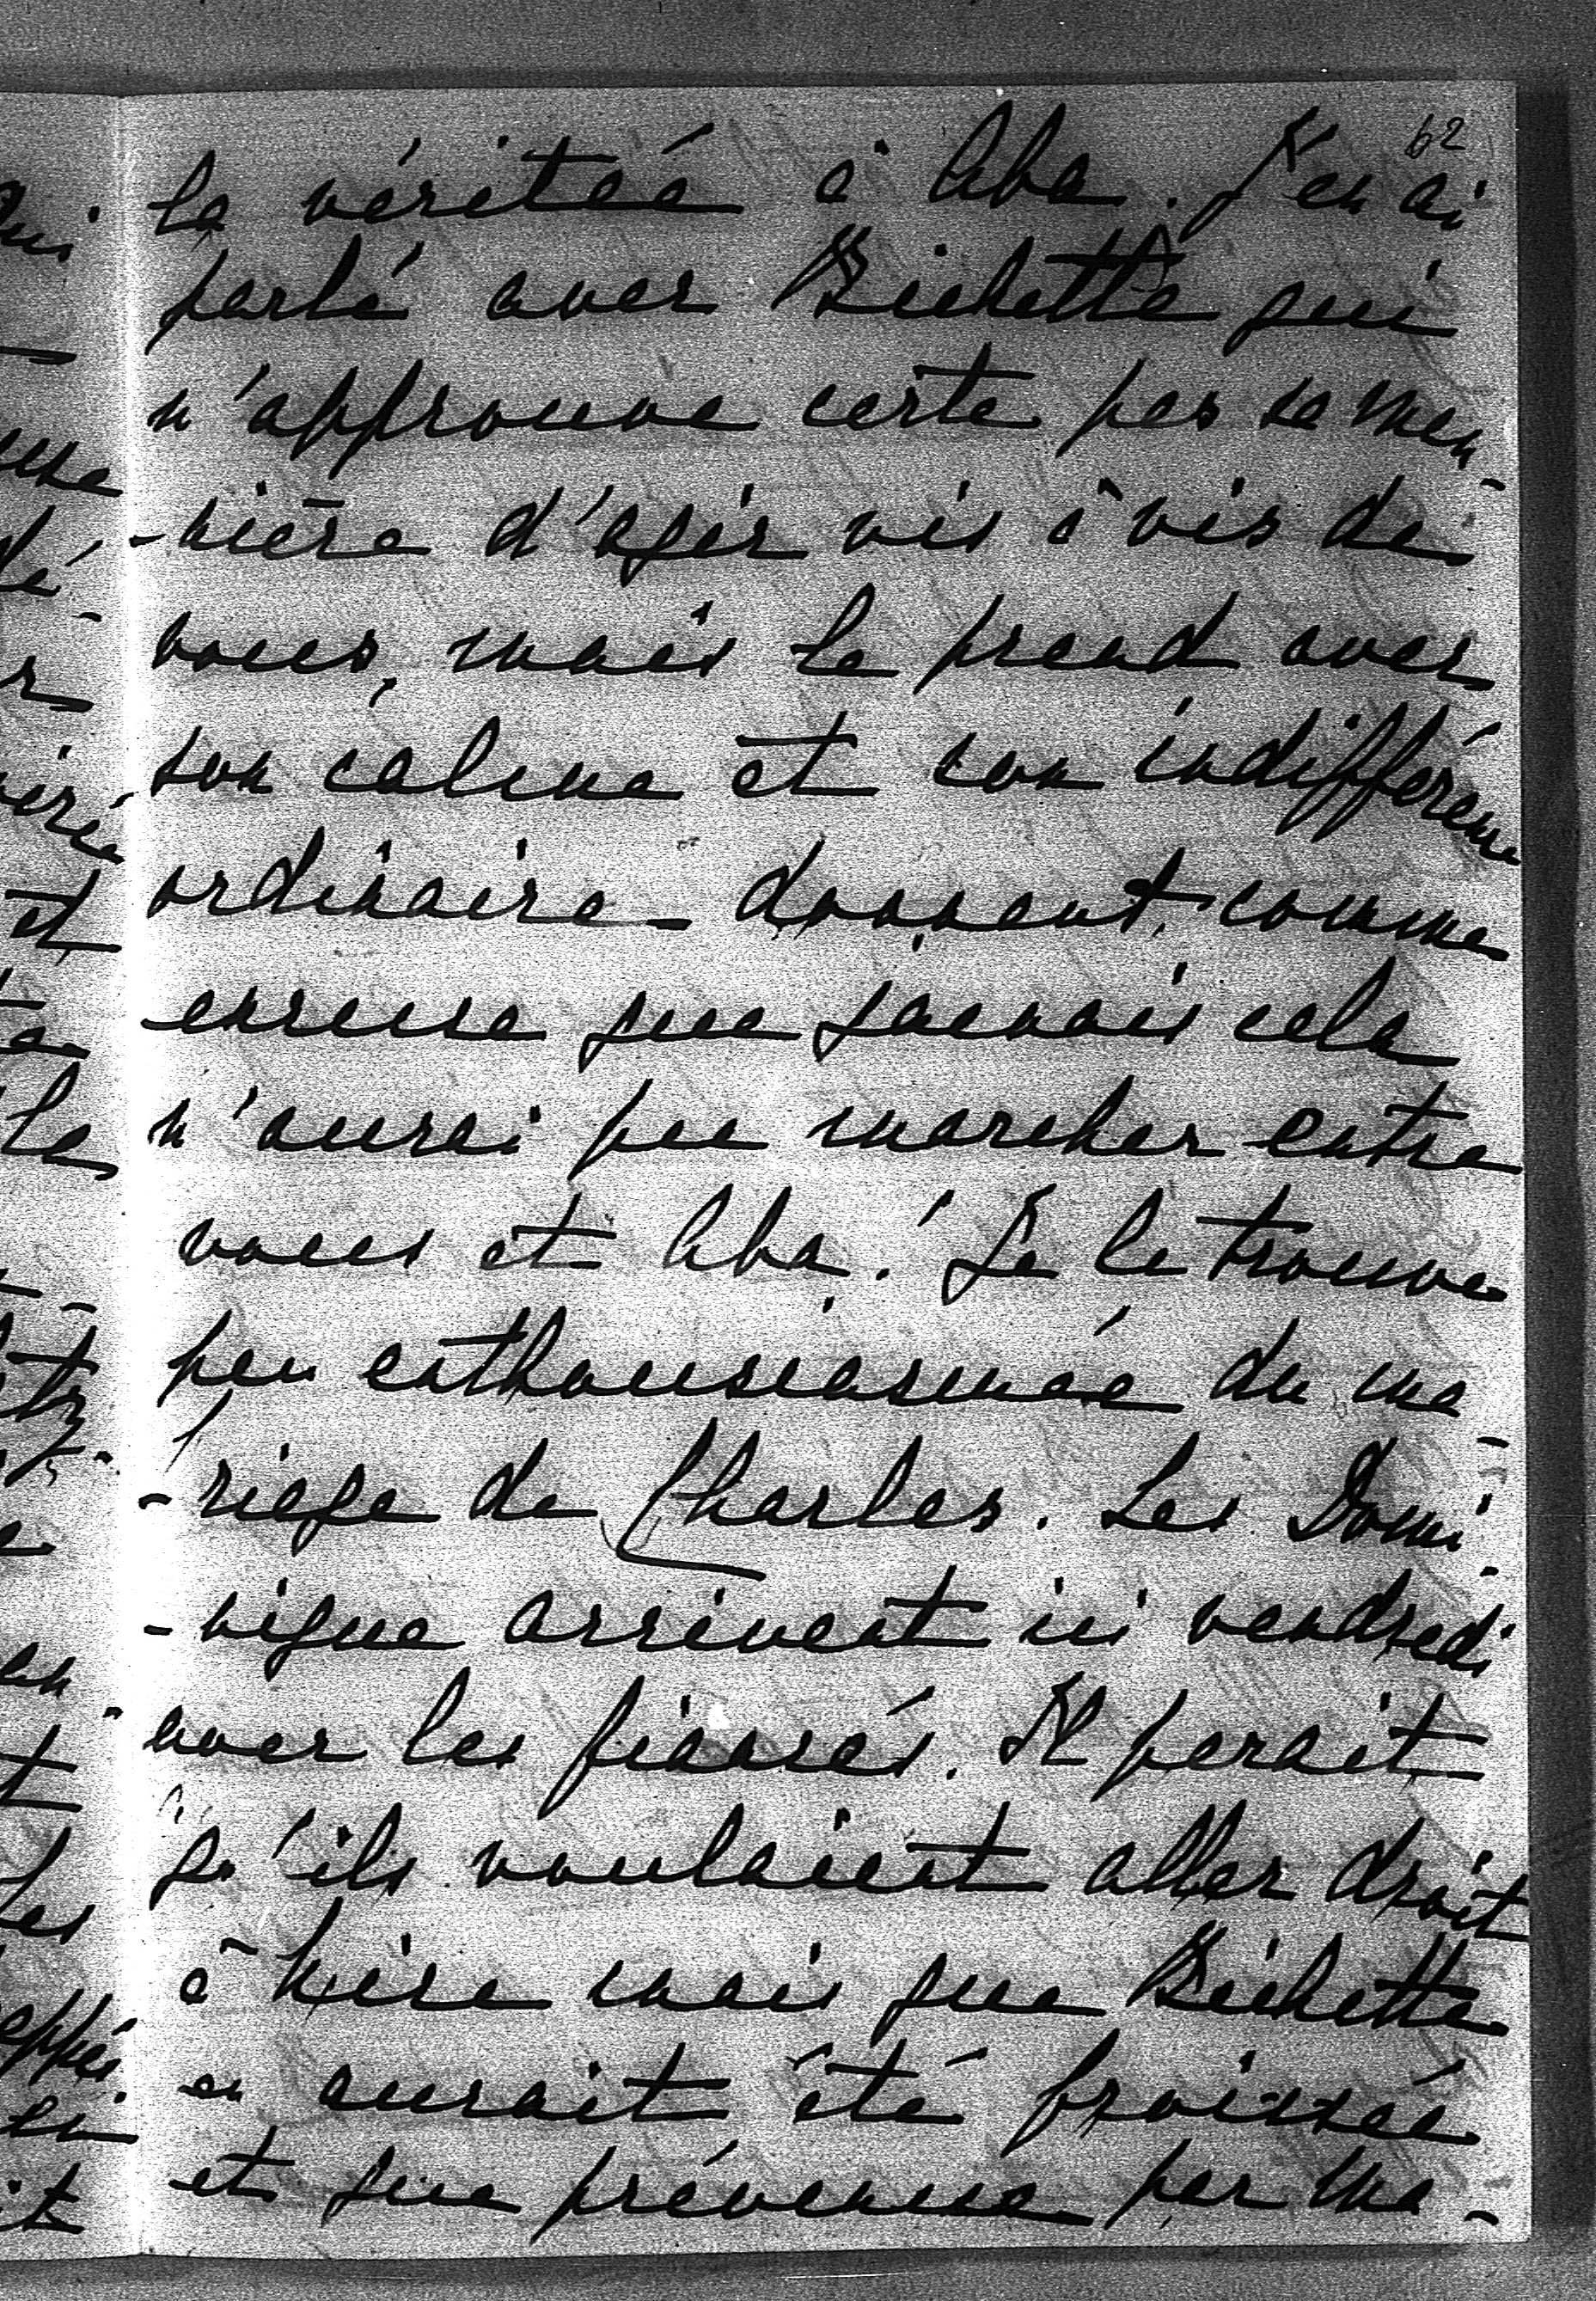 62
la véritée à Aba. J'en ai
parlé avec Bichette qui
n'approuve certe pas sa man-
-nière d'agir vis à vis de
vous, mais le prend avec
son calme et son indifférence
ordinaire - donnant comme
excuse que jamais cela
n'aurai pu marcher entre
vous et Aba! Je le trouve
peu enthousiasmée du ma-
-riage de Charles. Les Domi-
-nique arrivent ici vendredi
avec les fiancés. Il parait
qu'ils voulaient aller droit
à mais que Bichette
en aurait été froissée
et que prévenue par Ma-